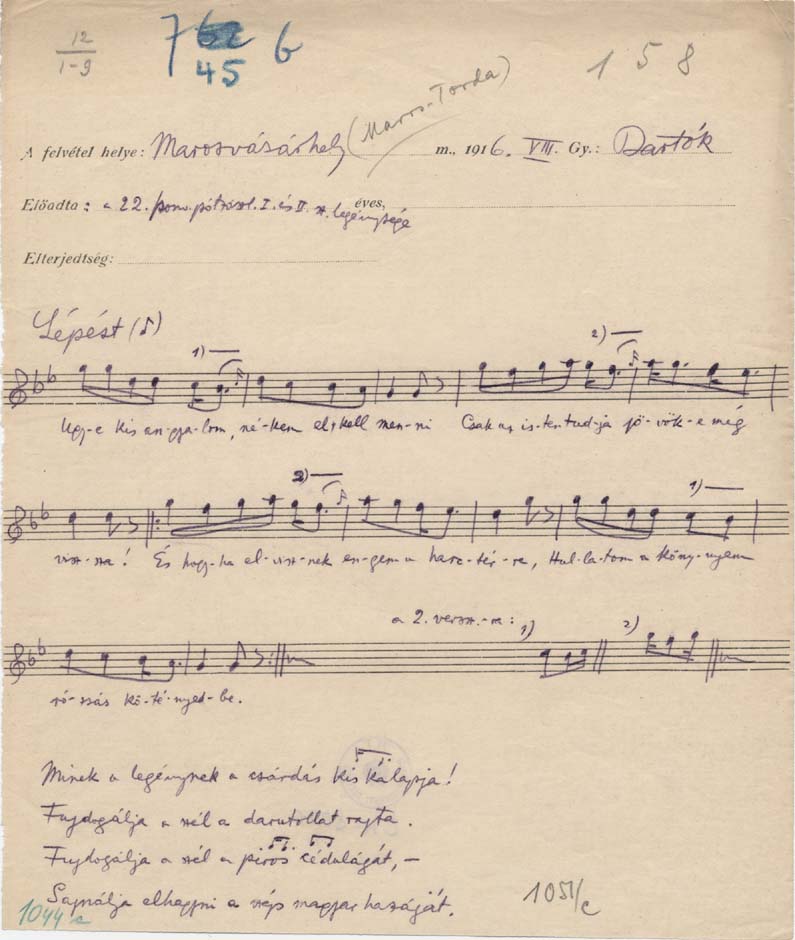 12
1-9
7 62 b
45
158
(Maros-Torda)
A felvétel helye: Marosvásárhely m., 1916. VIII. Gy.: Bartók
Előadta: a 22. pótzászl. I. és II. sz. legénysége éves,
Elterjedtség:
Lépést (♪)
1) 2)
Ugy-e kis an-gya-lom, né-kem el kell men-ni Csak az is-ten tud-ja jö-vök-e még
2) 1)
visz-sza! És hogy-ha el-visz-nek en-gem a harc-tér-re, Hul-la-tom a köny-nyem
a 2. versz.-ra: 1) 2)
ró-zsás kö-té-nyed-be.
Minek a legénynek a csárdás kis kalapja!
Fujdogálja a szél a darutollat rajta.
Fujdogálja a szél a piros cédulágát, –
Sajnálja elhagyni a szép magyar hazáját.
1044 c
1051/c